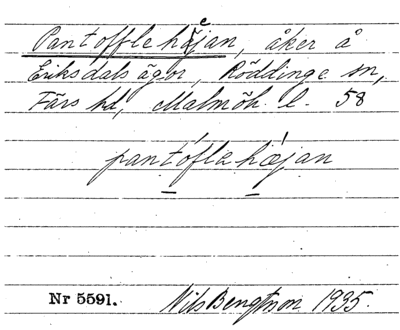 Pantofflehöjan, åker å
Eriksdals ägor, Röddinge sn,
Färs hd, Malmöh. l. 58
pantófla hǿjan
Nr 5591. Nils Bengtsson 1935.